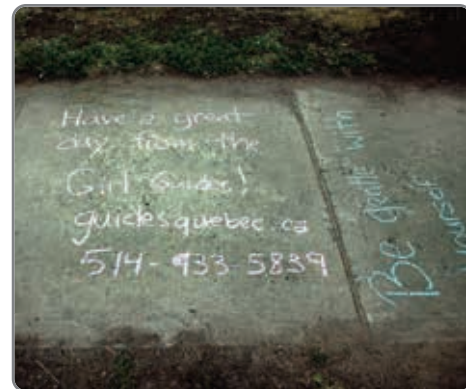 Have a great
day from the
Girl Guides!
guidesquebec.ca
514-933-5839
Be gentle with
yourself